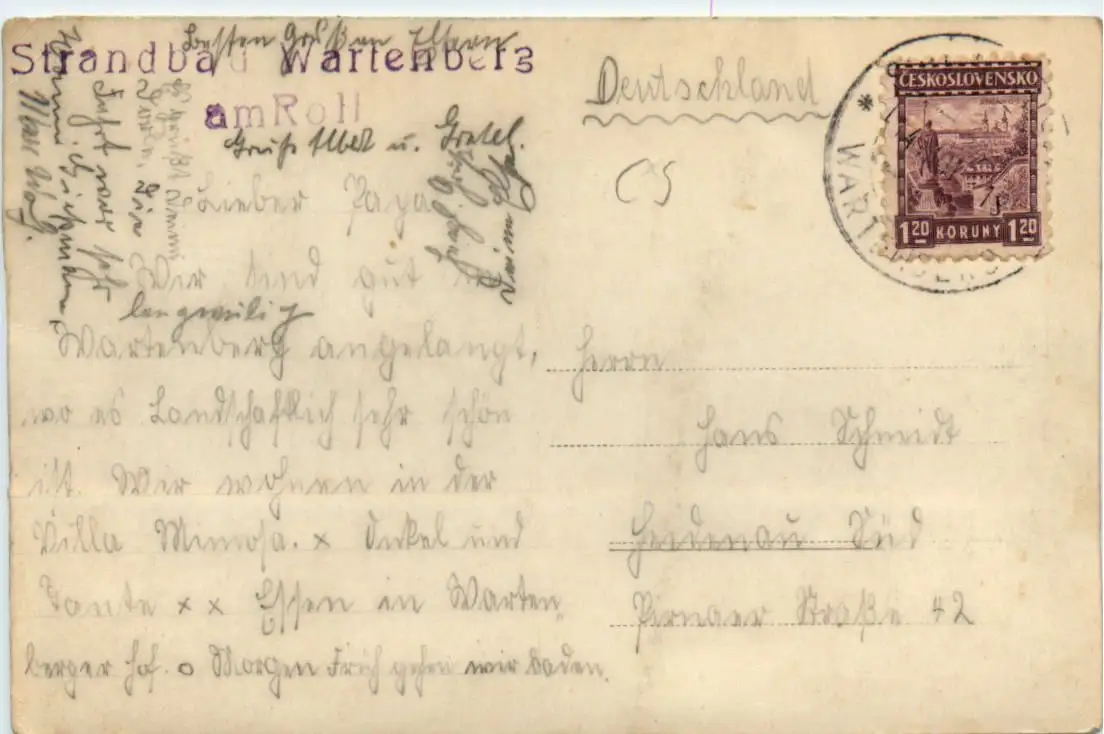 Besten Gruß an Eltern
Strandbad Wartenberg
am Roll
Gruß Albert u. Gretel.
Lieber Papa
Wir sind gut in
Wartenberg angelangt,
wo es Landschaftlich sehr schön
ist. Wir wohnen in der
Villa Mimosa. x Onkel und
Tante x x Essen in Warten
berger Hof. o Morgen Früh gehen wir baden.
Fahrt war sehr
langweilig
Deutschland
CS
ČESKOSLOVENSKO
1.20 KORUNY 1.20
WARTENBERG
Herrn
Hans Schmidt
Heidenau Süd
Pirnaer Straße 42